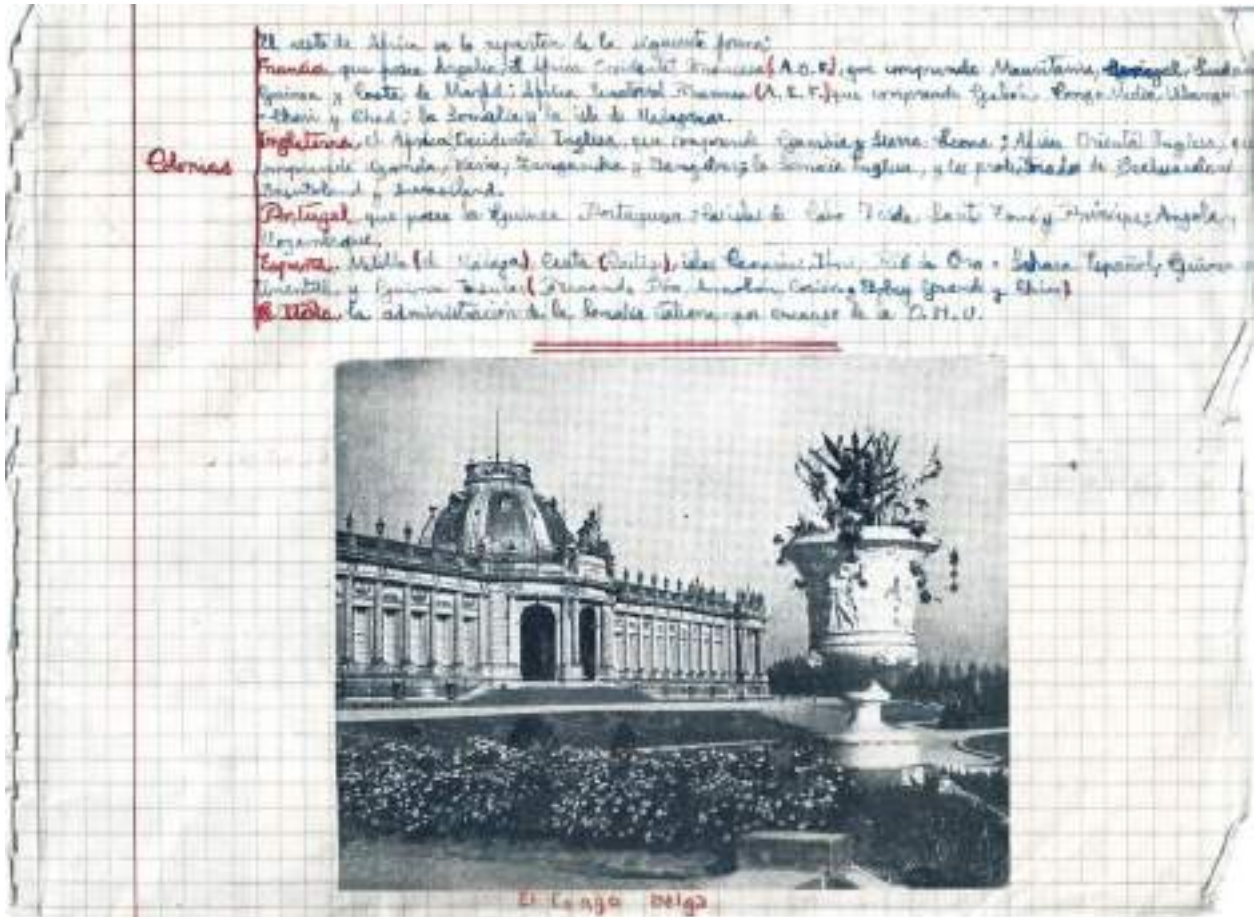 El resto de África se lo reparten de la siguiente forma:
Francia que posee Argelia, el África Occidental Francesa (A.O.F.), que comprende Mauritania, Senegal, Sudán
Guinea y Costa de Marfil; África Ecuatorial Francesa (A.E.F.) que comprende Gabón, Congo Medio, Ubangui
-Chari y Chad; la Somalia y la isla de Madagascar.
Inglaterra, el África Occidental Inglesa, que comprende Gambia y Sierra Leona; África Oriental Inglesa, que
Colonias
comprende Uganda, Kenia, Tanganika y Zanzíbar; la Somalia Inglesa, y los protectorados de Bechuanaland
Basutoland y Swaziland.
Portugal que posee la Guinea Portuguesa; las islas de Cabo Verde, Santo Tomé y Príncipe; Angola,
Mozambique.
España. Melilla (de Málaga), Ceuta (Cádiz), islas Canarias, Ifni, Río de Oro o Sahara Español, Guinea
Continental y Guinea Insular (Fernando Póo, Annobón, Corisco, Elobey Grande y Chico)
Italia, la administración de la Somalia Italiana por encargo de la O.N.U.
El Congo Belga